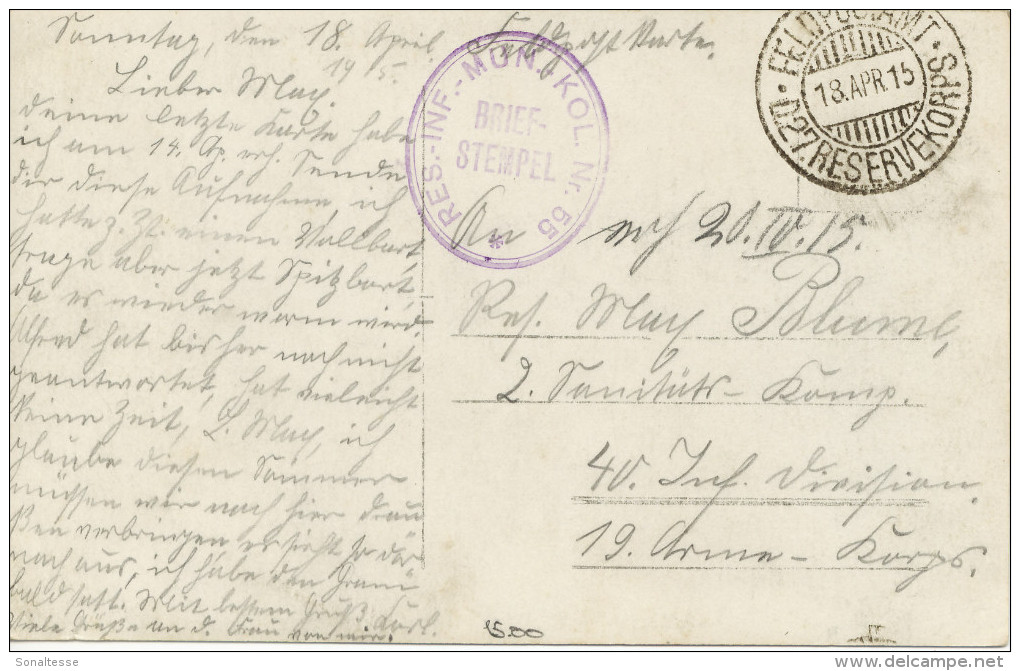 Sonntag, den 18. April.
1915.
Feldpost Karte.
Lieber Max.
deine letzte Karte habe
ich am 14. Ap. erh. Sende
dir diese Aufnahme, ich
hatte z. Zt. einen Vollbart,
trage aber jetzt Spitzbart,
da es wieder warm wird.
Alfred hat bisher noch nicht
geantwortet, hat vieleicht
keine Zeit, L. Max, ich
glaube diesen Sommer
müssen wir noch hier drau
ßen verbringen, es sieht so
nach aus, ich habe den
bald satt. Mit bestem Gruß Karl.
Viele Grüße an d. Frau von mir.
RES.-INF.-MUN.-KOL. Nr. 55
BRIEF-
STEMPEL
FELDPOSTAMT
18.APR.15
D.27.RESERVEKORPS
An erh 20.IV.15.
Res. Max Blume,
2. Sanitäts-Komp.
40. Inf. Division
19. Arme-Korps.
15.00
Sonaltesse
delcampe.net